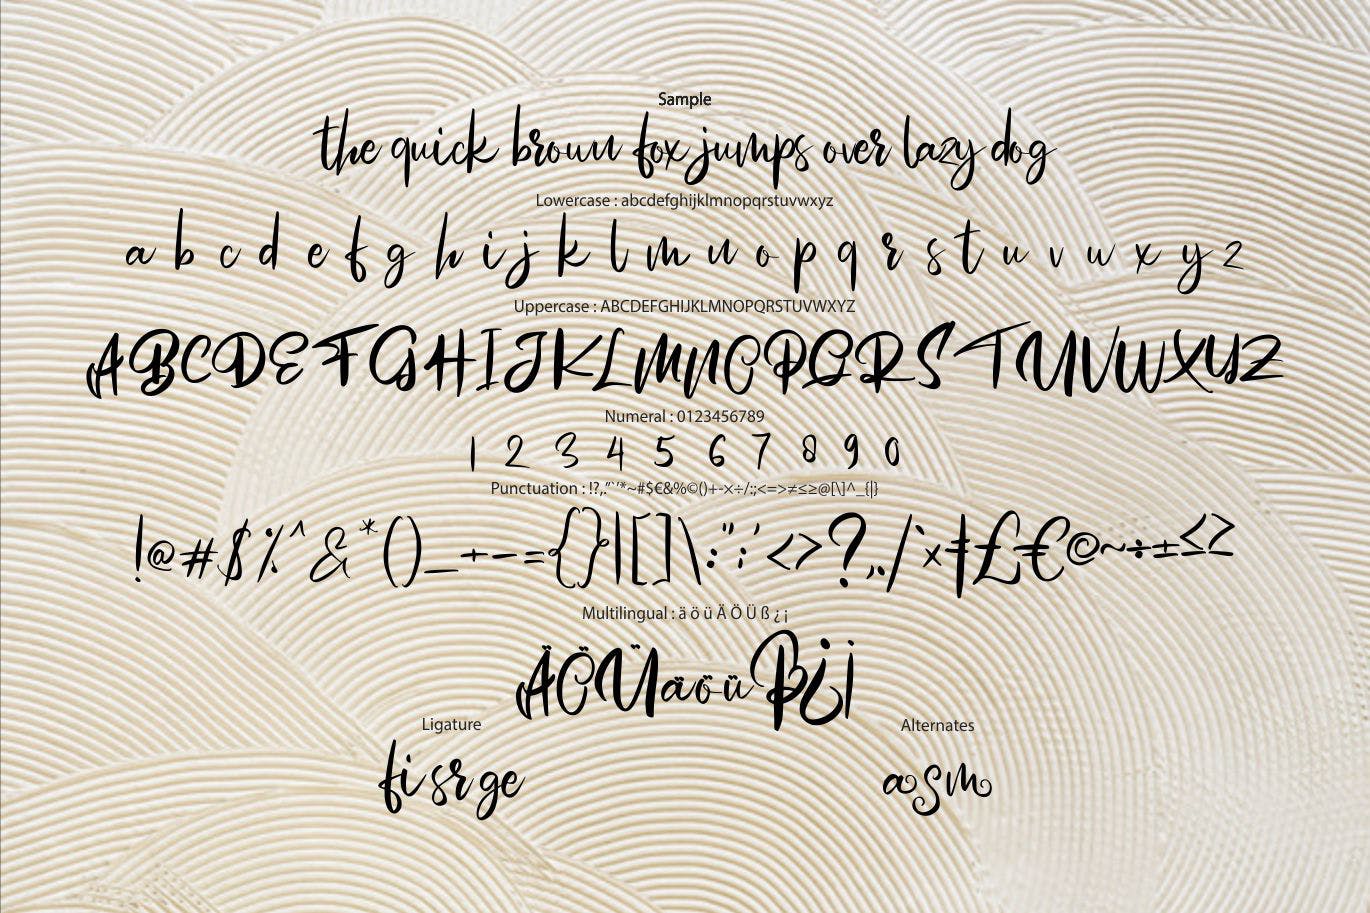 Sample
the quick brown fox jumps over lazy dog
Lowercase : abcdefghijklmnopqrstuvwxyz
a b c d e f g h i j k l m n o p q r s t u v w x y z
Uppercase : ABCDEFGHIJKLMNOPQRSTUVWXYZ
A B C D E F G H I J K L M N O P Q R S T U V W X Y Z
Numeral : 0123456789
1 2 3 4 5 6 7 8 9 0
Punctuation : !?,.”`’*~#$€&%©()+-×÷/:;<=>≠≤≥@[\]^_{|}
!@#$%^&*()_+−={}|[]\:";'<>?,./`×‡£€©~÷±≤≥
Multilingual : ä ö ü Ä Ö Ü ß ¿ ¡
ÄÖÜäöüß¿¡
Ligature
fi sr ge
Alternates
a s m